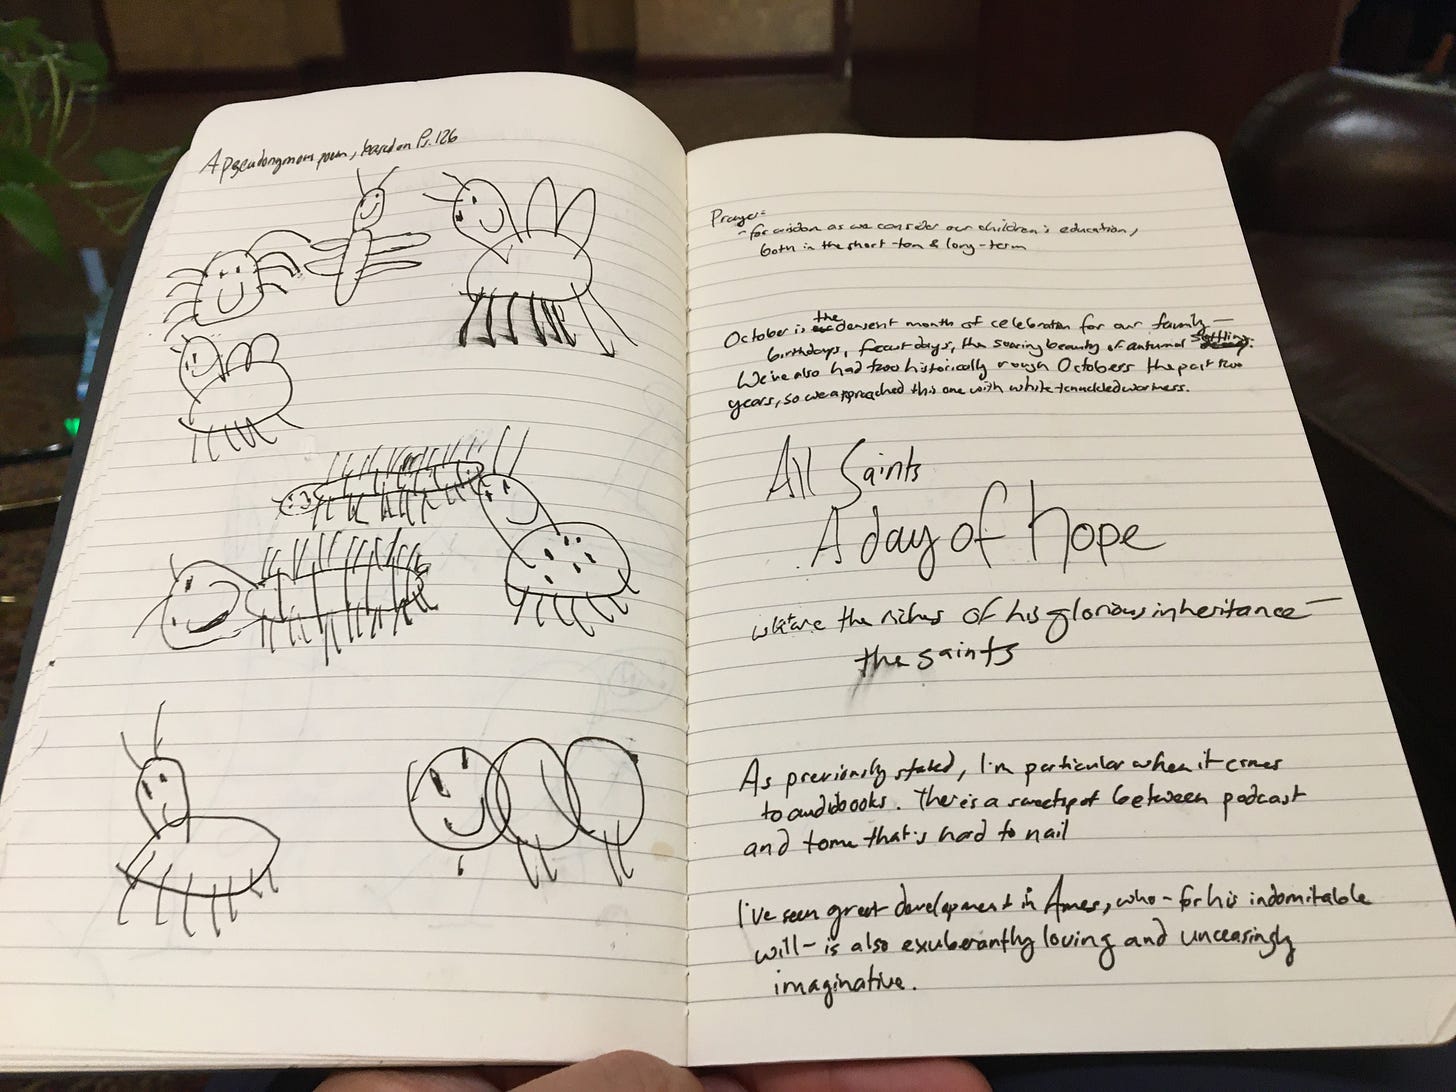 A pseudonymous poem, based on Ps. 126
Prayer:
- for wisdom as we consider our children's education,
both in the short-term & long-term
October is the densest month of celebration for our family —
birthdays, feast days, the soaring beauty of autumnal
We've also had two historically rough Octobers the past two
years, so we approached this one with white-knuckled wariness.
All Saints
A day of hope
what are the riches of his glorious inheritance —
the saints
As previously stated, I'm particular when it comes
to audiobooks. There is a sweetspot between podcast
and tome that's hard to nail
I've seen great development in Ames, who - for his indomitable
will - is also exuberantly loving and unceasingly
imaginative.